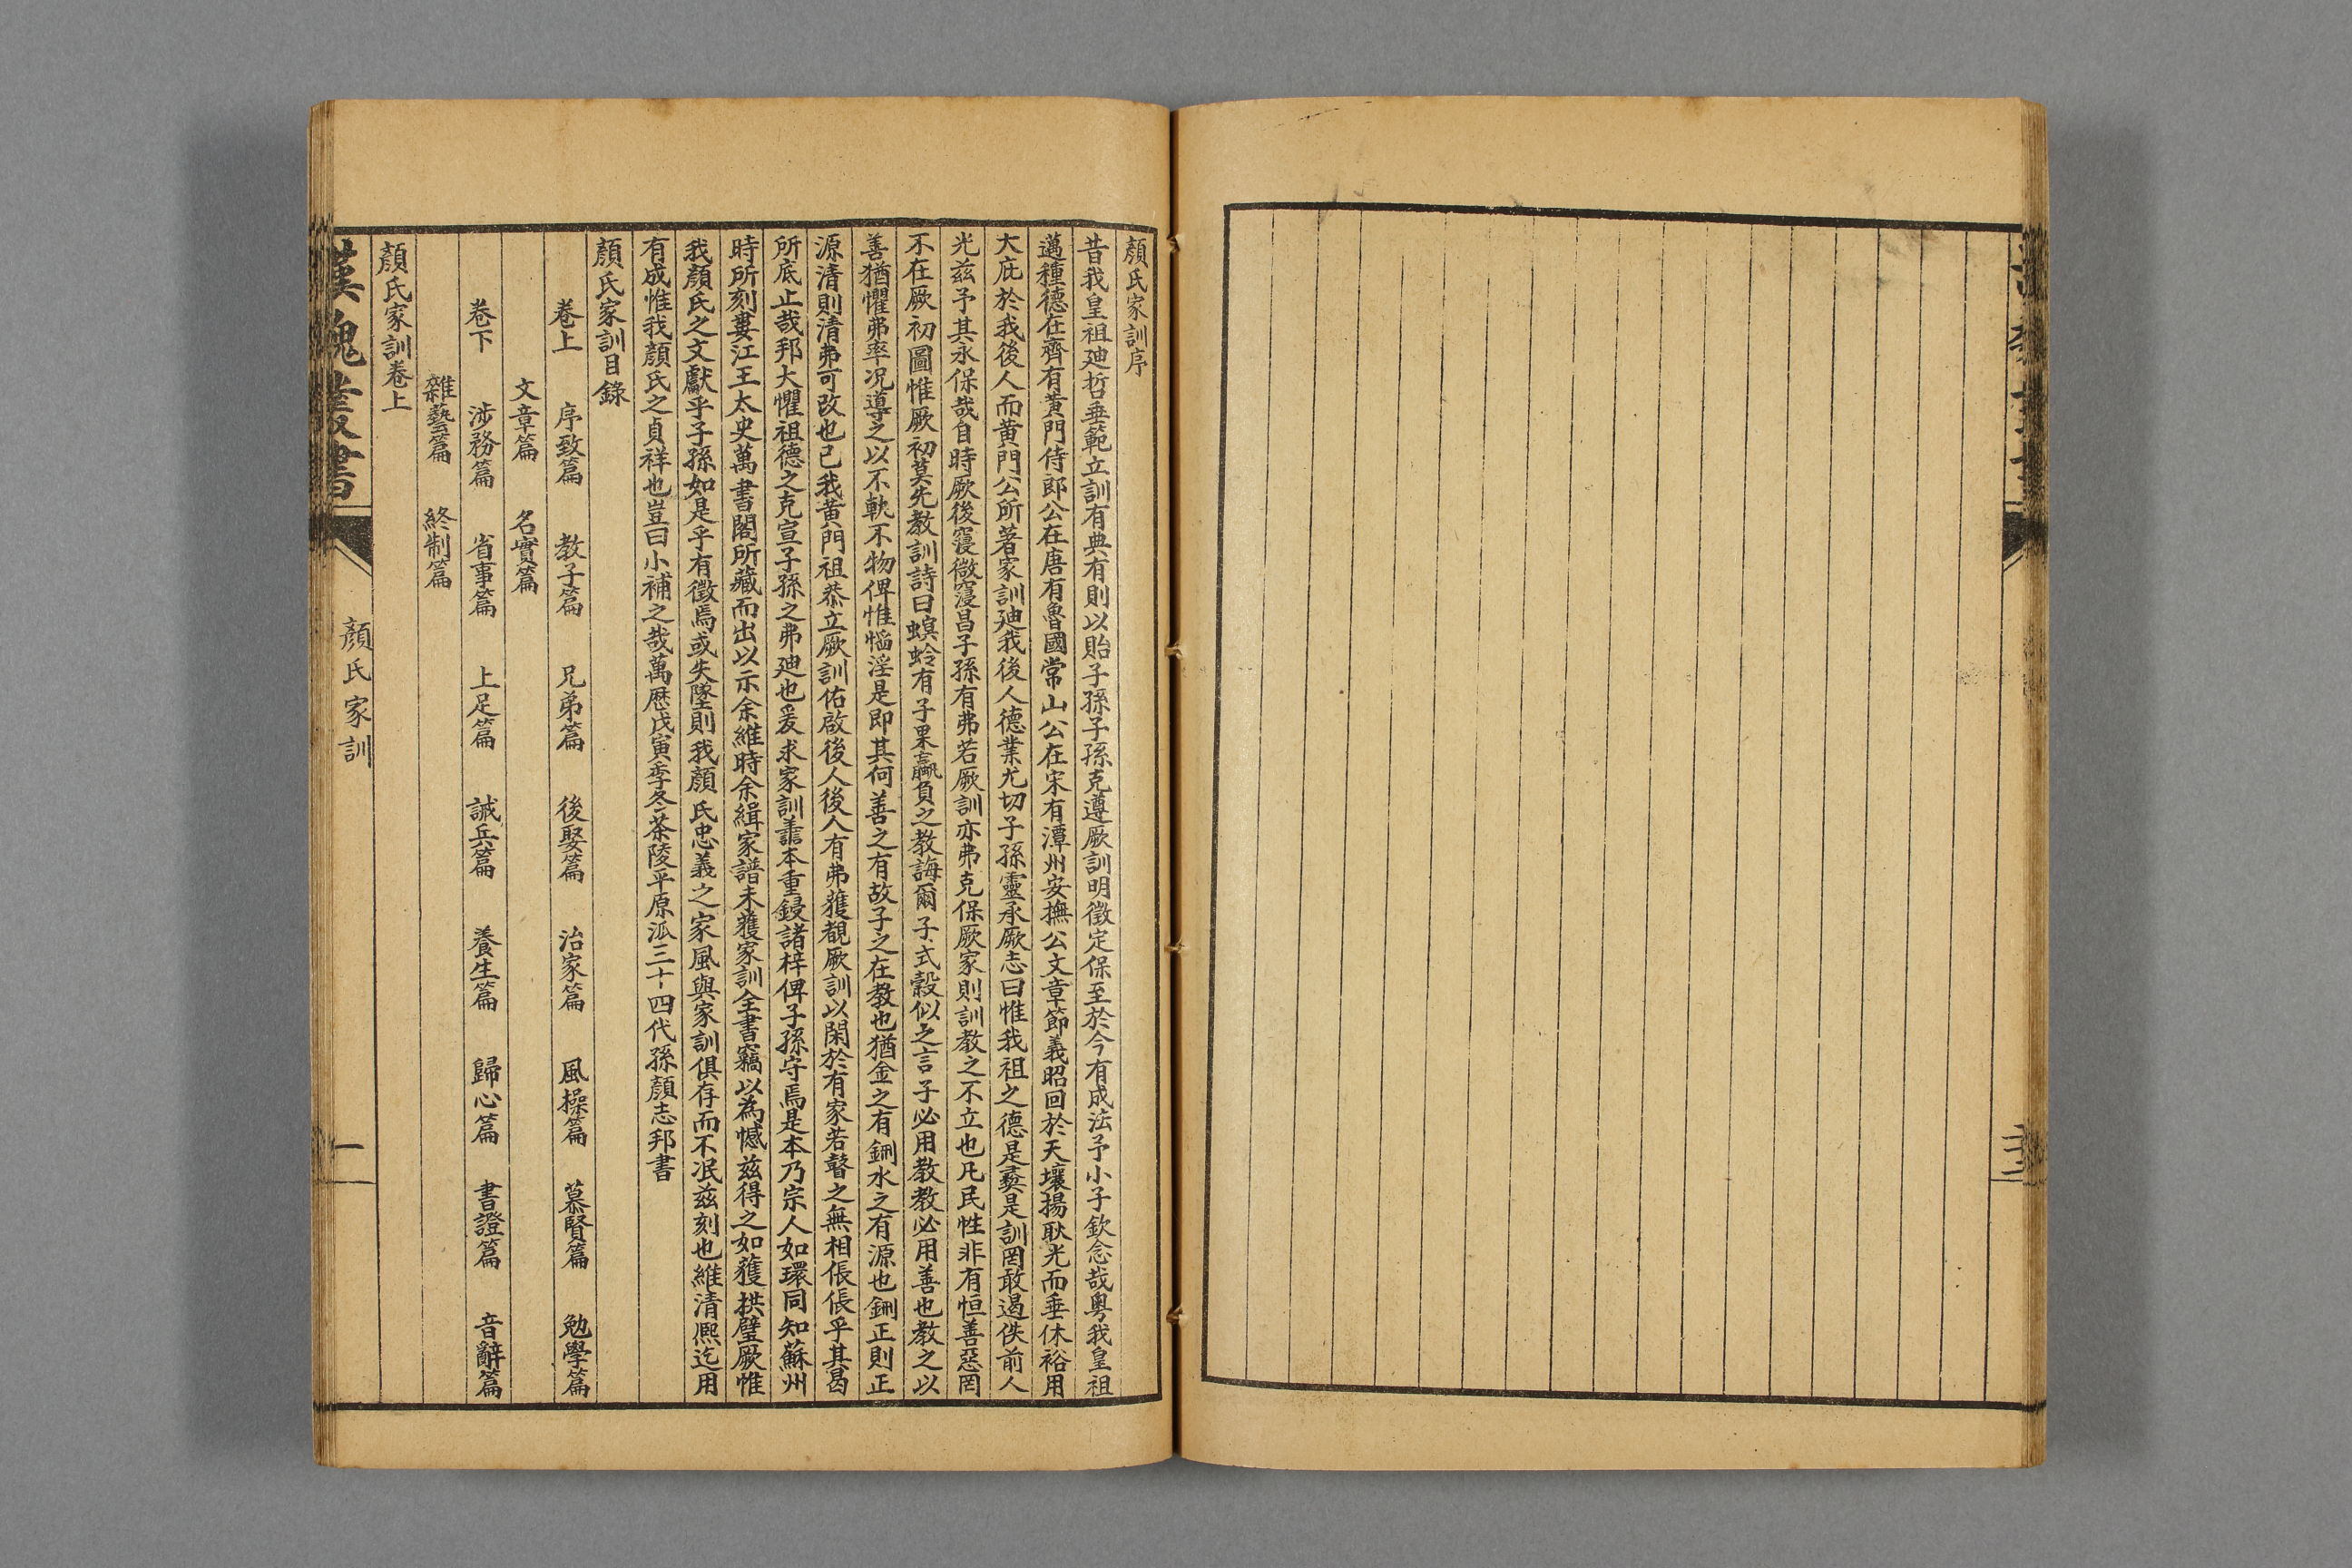 顏氏家訓序
昔我皇祖廸哲垂範立訓有典有則以貽子孫子孫克遵厥訓明徵定保至於今有成法予小子欽念哉粵我皇祖
邁種德在齊有黃門侍郎公在唐有魯國常山公在宋有潭州安撫公文章節義昭回於天壤揚耿光而垂休裕用
大庇於我後人而黃門公所著家訓廸我後人德業尤切子孫靈承厥志曰惟我祖之德是彞是訓罔敢遏佚前人
光兹予其永保哉自時厥後寖微寖昌子孫有弗若厥訓亦弗克保厥家則訓教之不立也凡民性非有恒善惡罔
不在厥初圖惟厥初莫先教訓詩曰螟蛉有子果蠃負之教誨爾子式榖似之言子必用教教必用善也教之以
善猶懼弗率况導之以不軌不物俾惟慆淫是即其何善之有故子之在教也猶金之有鉶水之有源也鉶正則正
源清則清弗可改也已我黃門祖恭立厥訓佑啟後人後人有弗獲覩厥訓以閑於有家若瞽之無相倀倀乎其曷
所底止哉邦大懼祖德之克宣子孫之弗廸也爰求家訓善本重鋟諸梓俾子孫守焉是本乃宗人如環同知蘇州
時所刻婁江王太史萬書閣所藏而出以示余維時余緝家譜未獲家訓全書竊以為憾兹得之如獲拱璧厥惟
我顏氏之文獻乎子孫如是乎有徵焉或失墜則我顏氏忠義之家風與家訓俱存而不泯兹刻也維清熙迄用
有成惟我顏氏之貞祥也豈曰小補之哉萬厯戊寅季冬茶陵平原派三十四代孫顏志邦書
顏氏家訓目錄
卷上 序致篇 教子篇 兄弟篇 後娶篇 治家篇 風操篇 慕賢篇 勉學篇
文章篇 名實篇
卷下 涉務篇 省事篇 止足篇 誡兵篇 養生篇 歸心篇 書證篇 音辭篇
雜藝篇 終制篇
顏氏家訓卷上
漢魏叢書 顏氏家訓 一